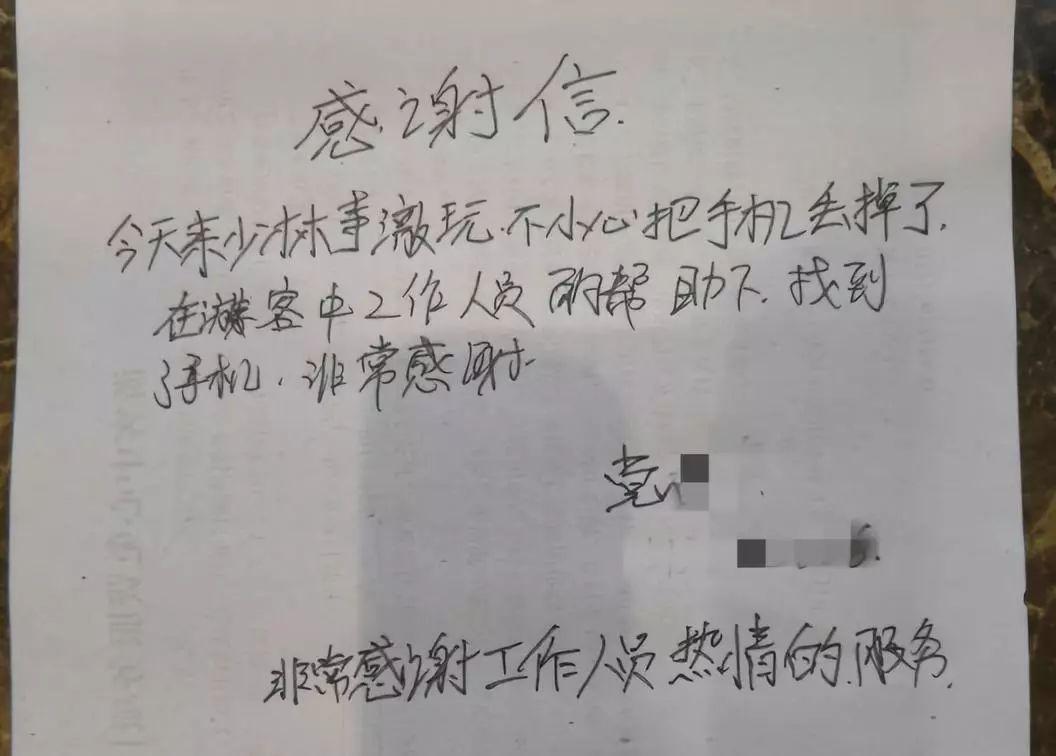 感谢信.
今天来少林寺激玩.不小心把手机丢掉了.
在游客中工作人员的帮助下.找到
手机.非常感射.
党
6.
非常感谢工作人员热情的服务.